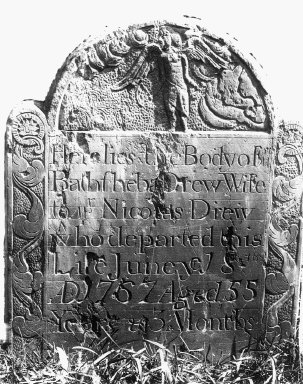 Here lies the Body of
Bathsheba Drew Wife
to Mr Nicolas Drew
who departed this
Life June ye 18th
AD 1757 Aged 55
Years & 3 Months